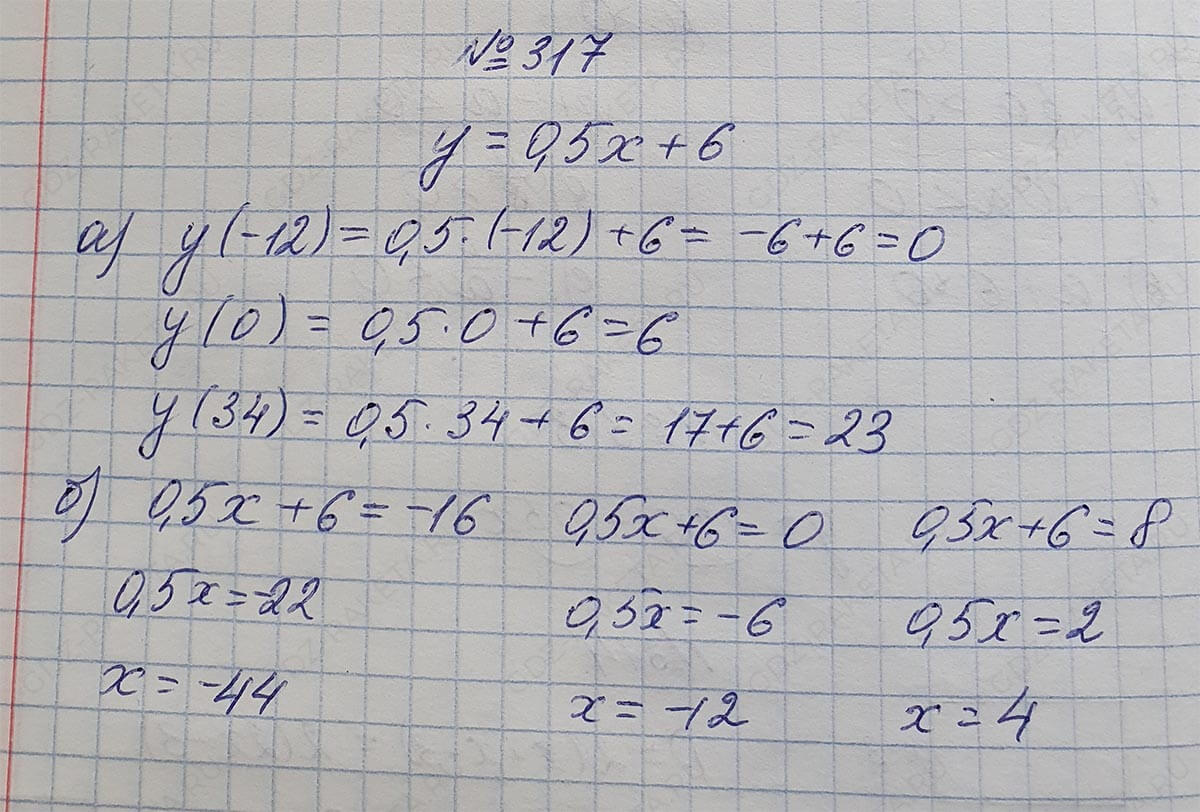 №317
y = 0,5x + 6
а) y(-12) = 0,5·(-12) + 6 = -6 + 6 = 0
y(0) = 0,5·0 + 6 = 6
y(34) = 0,5·34 + 6 = 17+6 = 23
б) 0,5x + 6 = -16 0,5x+6 = 0 0,5x+6 = 8
0,5x = -22 0,5x = -6 0,5x = 2
x = -44 x = -12 x = 4